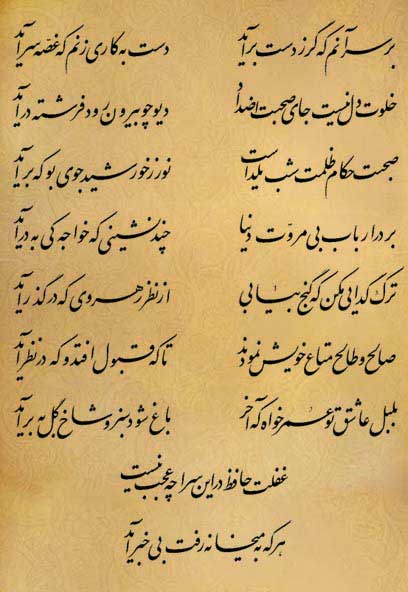 بر سر آنم که گر ز دست برآید دست به کاری زنم که غصّه سر آید
خلوت دل نیست جای صحبت اضداد دیو چو بیرون رود فرشته درآید
صحبت حکام ظلمت شب یلداست نور ز خورشید جوی بو که برآید
بر در ارباب بی مروّت دنیا چند نشینی که خواجه کی به درآید
ترک گدایی مکن که گنج بیابی از نظر رهروی که در گذر آید
صالح و طالح متاع خویش نمودند تا که قبول افتد و که در نظر آید
بلبل عاشق تو عمر خواه که آخر باغ شود سبز و شاخ گل به بر آید
غفلت حافظ در این سراچه عجب نیست
هر که به میخانه رفت بی خبر آید